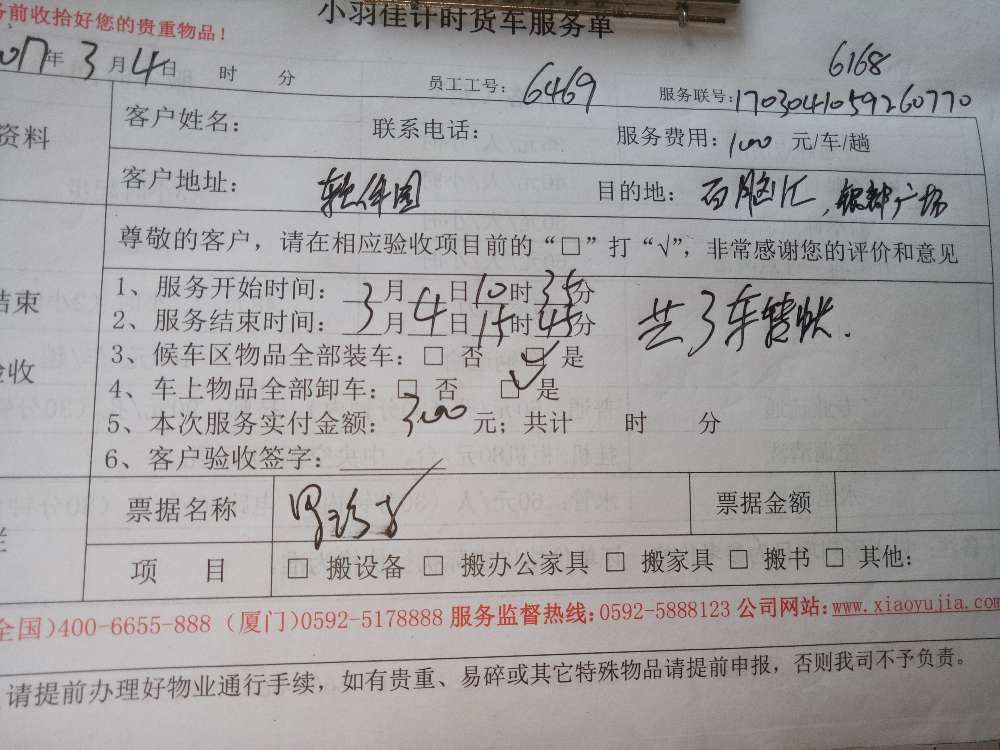 务前收拾好您的贵重物品！
小羽佳计时货车服务单
2017年3月4日 时 分
员工工号：6469
6168
服务联号：1703041059260770
资料
客户姓名： 联系电话： 服务费用：100 元/车/趟
客户地址：软件园 目的地：百脑汇，银聚广场
尊敬的客户，请在相应验收项目前的“□”打“√”，非常感谢您的评价和意见
结束
验收
1、服务开始时间：3月4日10时35分
2、服务结束时间：3月4日15时45分
共3车转账.
3、候车区物品全部装车：□ 否 ☑ 是
4、车上物品全部卸车：□ 否 ☑ 是
5、本次服务实付金额：300元；共计 时 分
6、客户验收签字：
票据名称 票据金额
项 目 □ 搬设备 □ 搬办公家具 □ 搬家具 □ 搬书 □ 其他：
全国)400-6655-888 (厦门)0592-5178888 服务监督热线：0592-5888123 公司网站：www.xiaoyujia.com
请提前办理好物业通行手续，如有贵重、易碎或其它特殊物品请提前申报，否则我司不予负责。